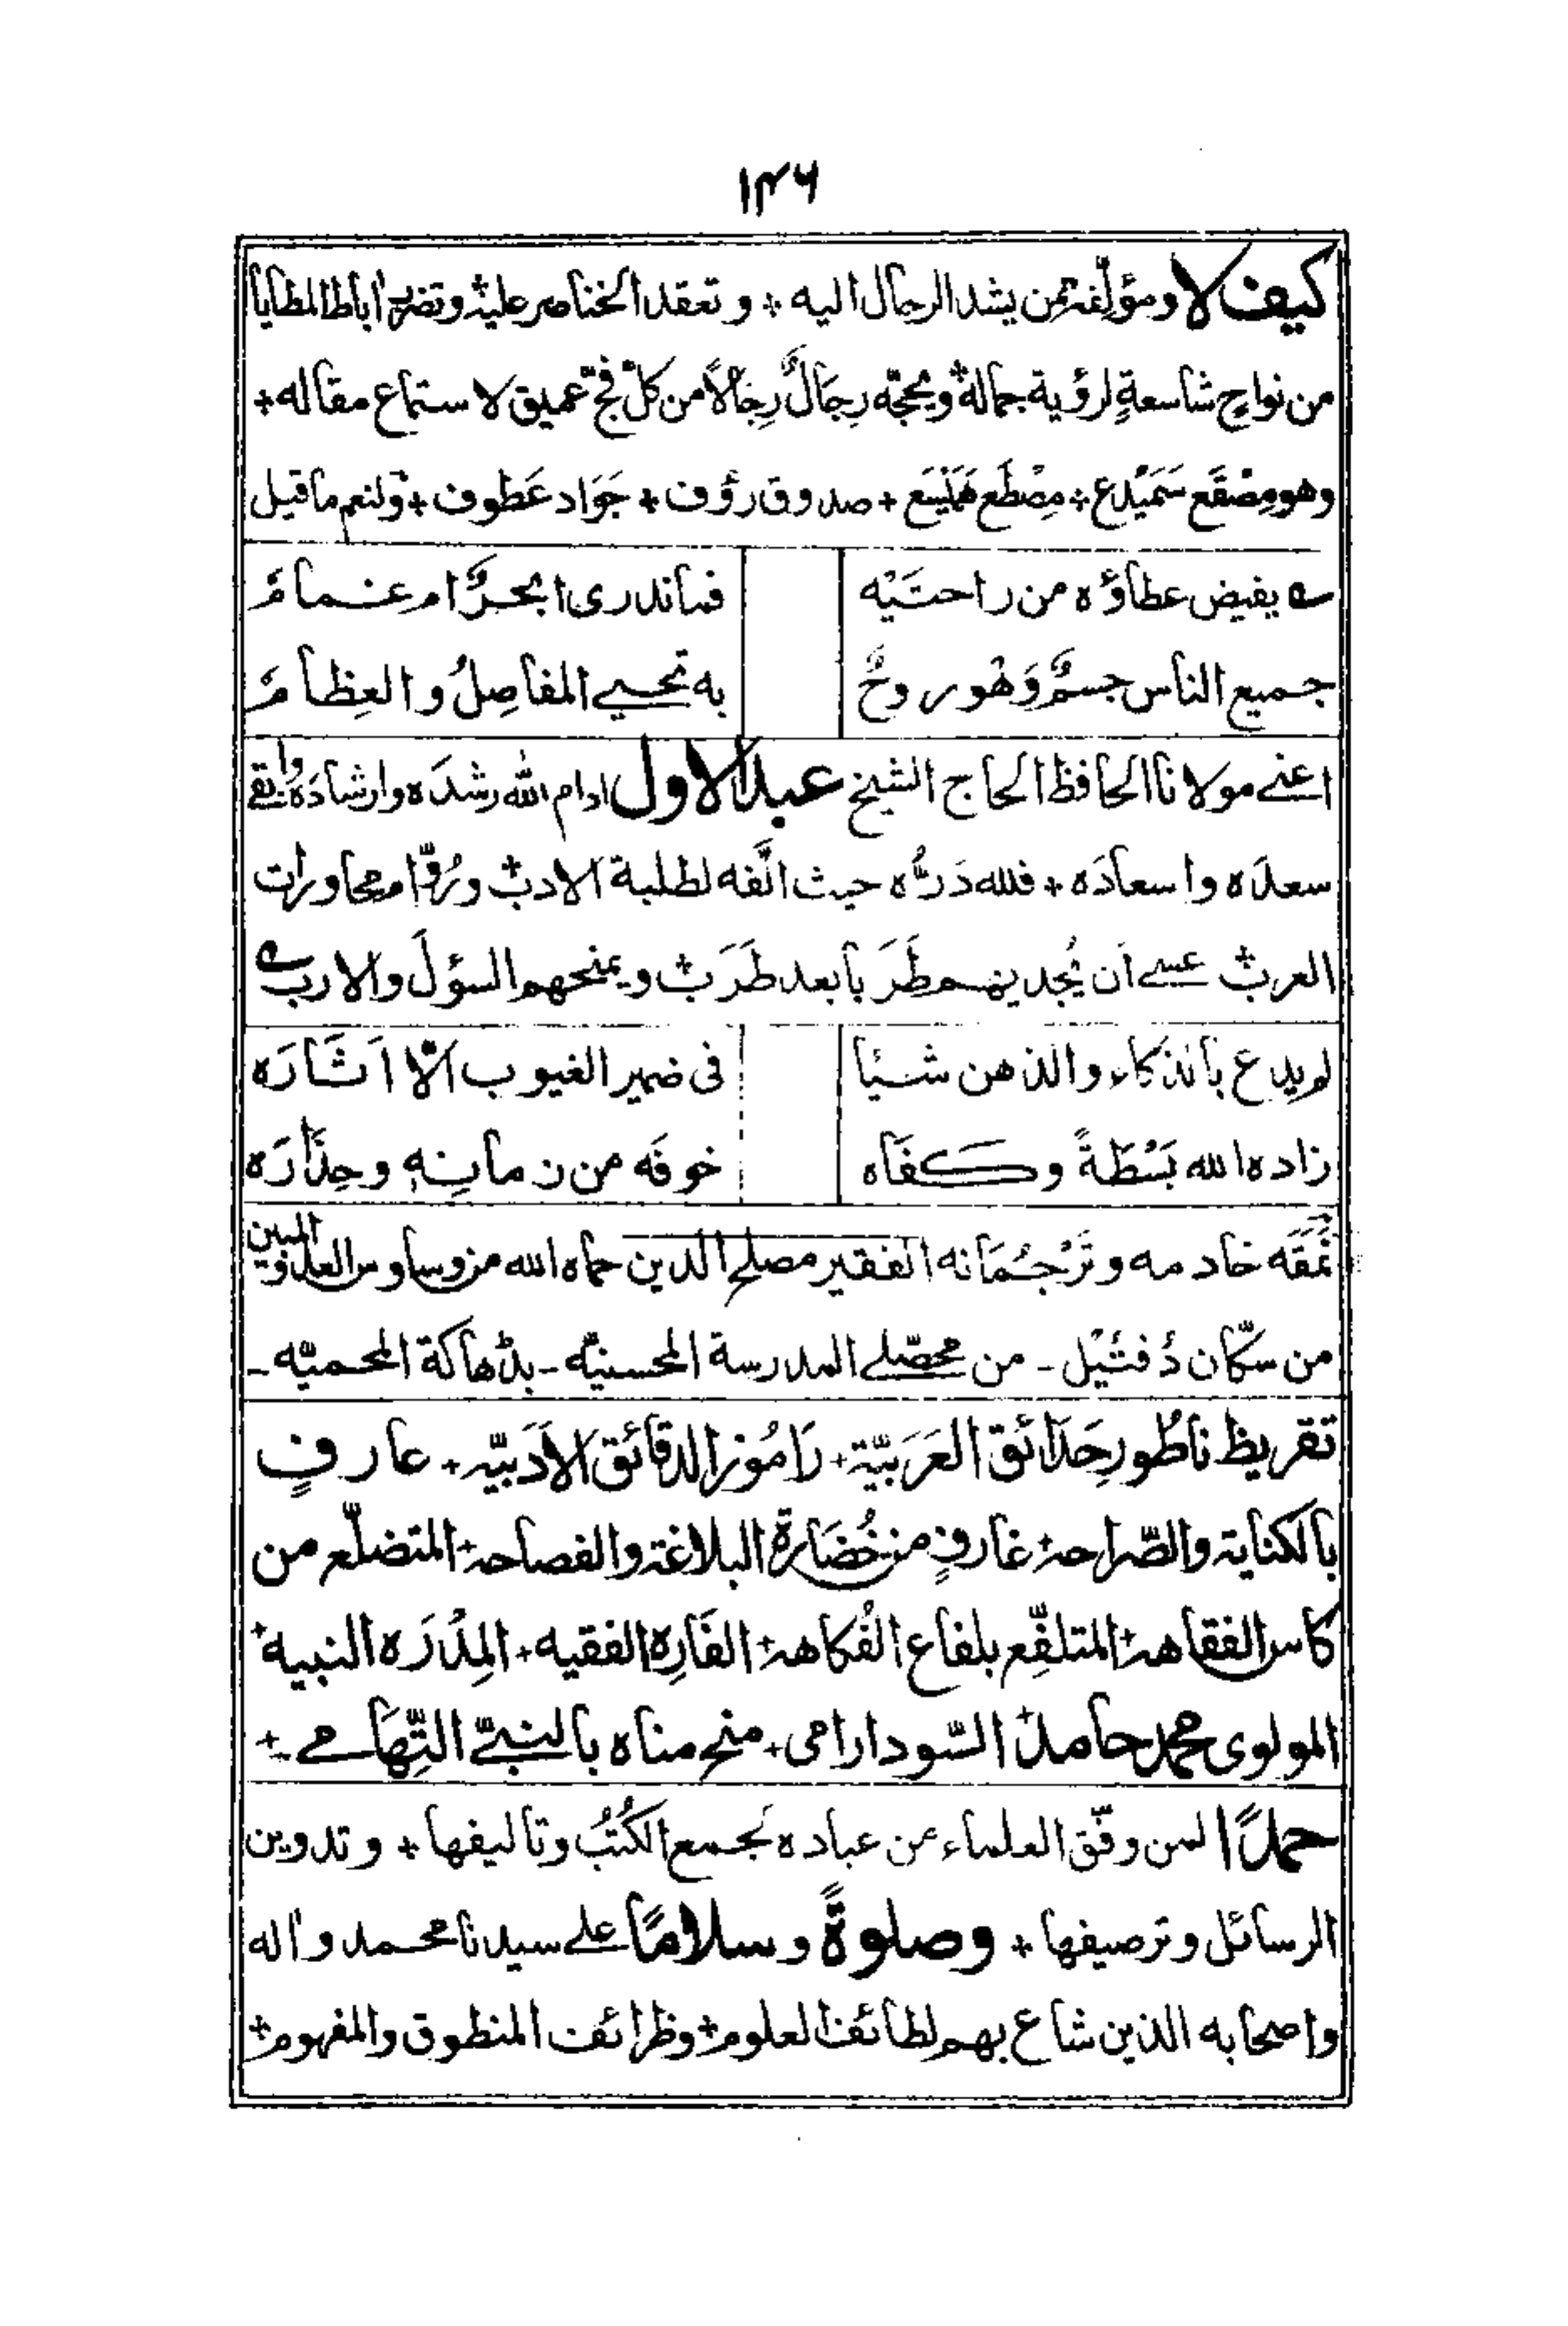 ١٣٦
كيف لا ومؤلّفه ممن يشد الرحال اليه + وتعقد الخناصر عليه + وتضرب اباط المطايا
من نواحٍ شاسعةٍ لرؤية جماله + ويحجّه رجَالٌ رِجَالاً من كلّ فجّ عميق لاستماع مقاله +
وهو مِصْقَع سَمَيْدع + مِصْطَع هَمَيْسَع + صدوق رؤف + جَوَاد عَطوف + ولنعم ما قيل
يفيض عطاؤه من راحتَيْه
فما ندرى ابحرٌ ام غمامُ
جميع الناس جسمٌ وَهْو روحٌ
به تحيى المفاصِلُ والعِظامُ
اعنى مولانا الحافظ الحاج الشيخ عبد الاول ادام الله رشدَه وارشادَه وابقى
سعدَه واسعادَه + فلله دَرُّه حيث الَّفه لطلبة الادب + ورُوّام محاورات
العرب + عسى ان يُجديهم طَرَبا بعد طَرَب + ويمنحهم السؤلَ والارب
لم يدع بالذكاء والذهن شيئا
فى ضمير الغيوب الّا اَثَارَه
زاده الله بَسْطَةً وكفَاه
خوفَه من زمانِه وحِذَارَه
نَمَّقَه خادمه وتَرْجُمَانه الفقير مصلح الدين حماه الله من وساوس العدو المبين
من سكّان دُفتيْل - من محصّلى المدرسة المحسنيّه - بڈهاكة المحميّه -
تقريظ ناطُور حَدَائق العَرَبيّة + رَامُوز الدقائق الاَدَبيّه + عارفٍ
بالكناية والصّراحة + غارفٍ من خُضَارة البلاغة والفصاحة + المتضلّع من
كاس الفقاهة + المتلفّع بلفاع الفُكاهة + الفَارِه الفقيه + المِدْرَه النبيه +
المولوى محمد حامد السّودارامى + منح مناه بالنبىّ التِّهَامى +
حمدًا لمن وفّق العلماء من عباده لجمع الكُتُب وتاليفها + وتدوين
الرسائل وترصيفها + وصلوةً وسلامًا على سيدنا محمد واله
واصحابه الذين شاع بهم لطائف العلوم + وظرائف المنطوق والمفهوم +